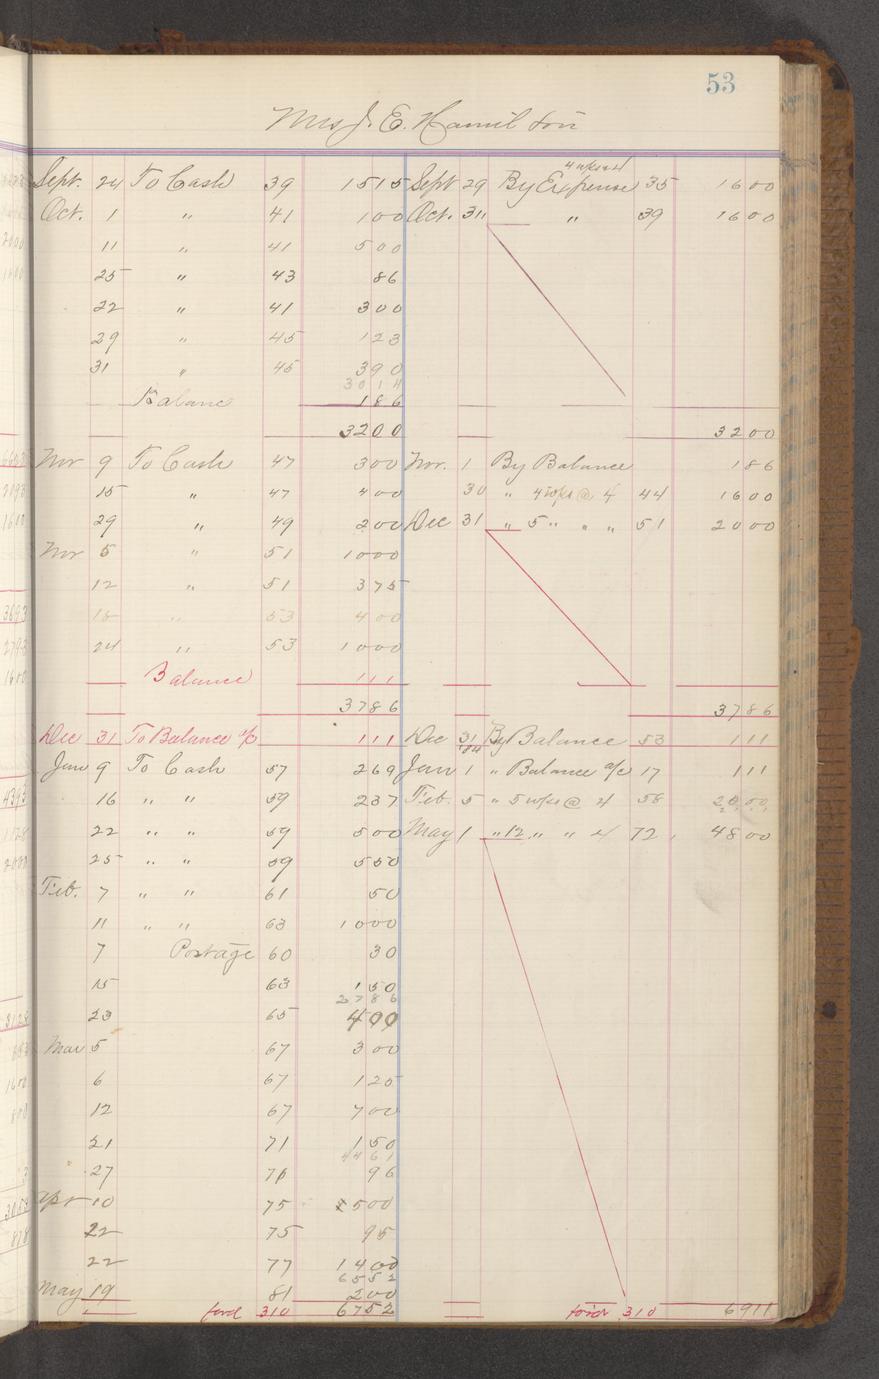 53
Mrs J. E. Hamilton
4 wks @ 4
Sept. 24 To Cash 39 1515 Sept 29 By Expense 35 1600
Oct. 1 " 41 100 Oct. 31 " " 39 1600
11 " 41 500
25 " 43 86
22 " 41 300
29 " 45 123
31 " 45 390
3014
Balance 186
3200 3200
Nov 9 To Cash 47 300 Nov. 1 By Balance 186
15 " 47 400 30 " 4 wks @ 4 44 1600
29 " 49 200 Dec 31 " 5 " " " 51 2000
Nov 5 " 51 1000
12 " 51 375
15 " 53 400
24 " 53 1000
Balance 111
3786 3786
Dec 31 To Balance a/c 111 Dec 31 By Balance 53 111
Jan 9 To Cash 57 269 Jan 1 " Balance a/c 17 111
16 " " 59 237 Feb. 5 " 5 wks @ 4 58 2000
22 " " 59 500 May 1 " 12 " " 4 72 4800
25 " " 59 550
Feb. 7 " " 61 50
11 " " 63 1000
7 Postage 60 30
15 63 150
2786
23 65 400
Mar 5 67 300
6 67 125
12 67 700
21 71 150
4461
27 71 96
Apr 10 75 500
22 75 95
22 77 1400
6552
May 19 81 200
ford 310 6752 for'd 310 6911